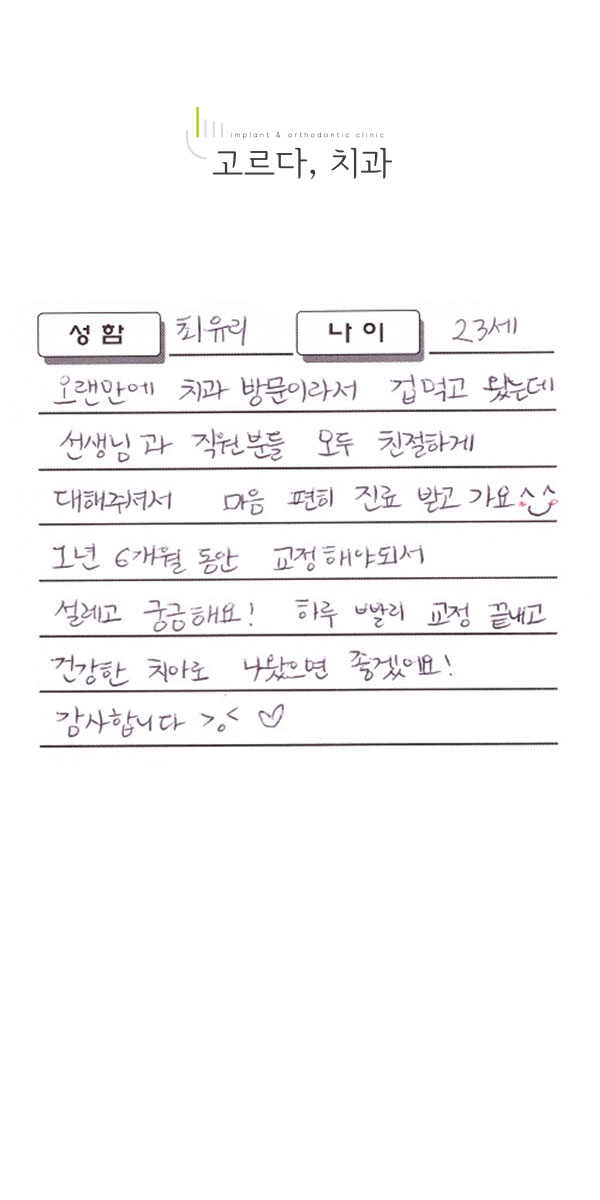 implant & orthodontic clinic
고르다, 치과
성 함 최유리 나 이 23세
오랜만에 치과 방문이라서 겁먹고 왔는데
선생님과 직원분들 모두 친절하게
대해주셔서 마음 편히 진료 받고 가요^^
1년 6개월 동안 교정해야되서
설레고 궁금해요! 하루 빨리 교정 끝내고
건강한 치아로 나왔으면 좋겠어요!
감사합니다 >.< ♡